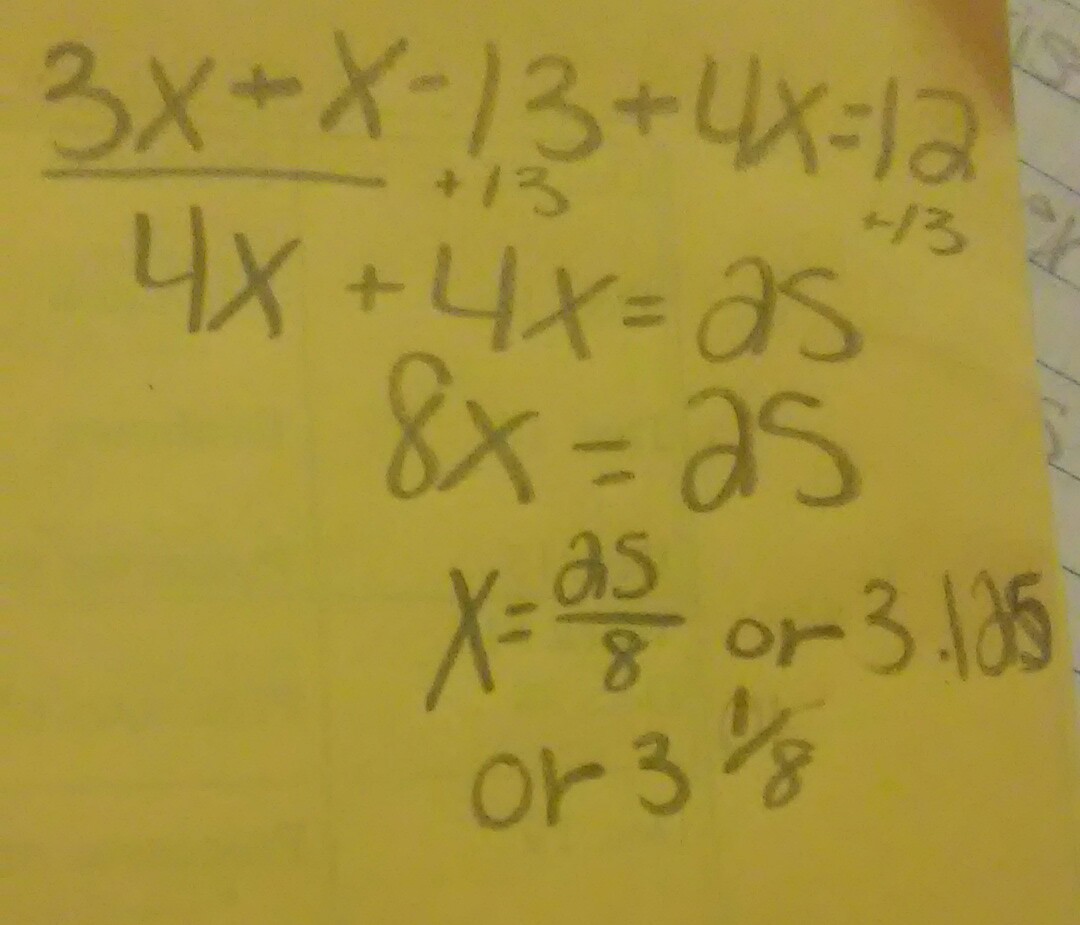 3x + x - 13 + 4x = 12
+13 +13
4x + 4x = 25
8x = 25
x = 25/8 or 3.125
or 3 1/8